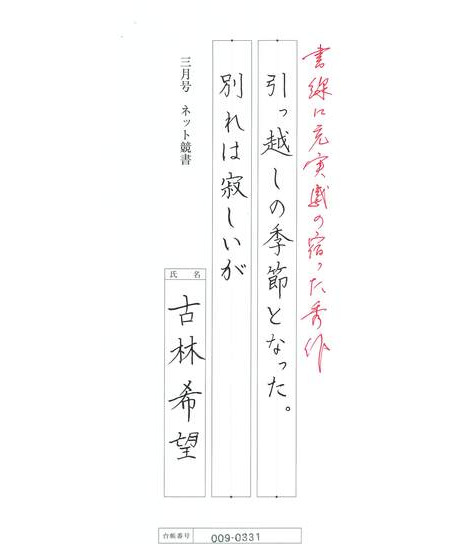 書線に充実感の宿った秀作
引っ越しの季節となった。
別れは寂しいが
三月号 ネット競書
氏名
古林希望
台帳番号 009-0331